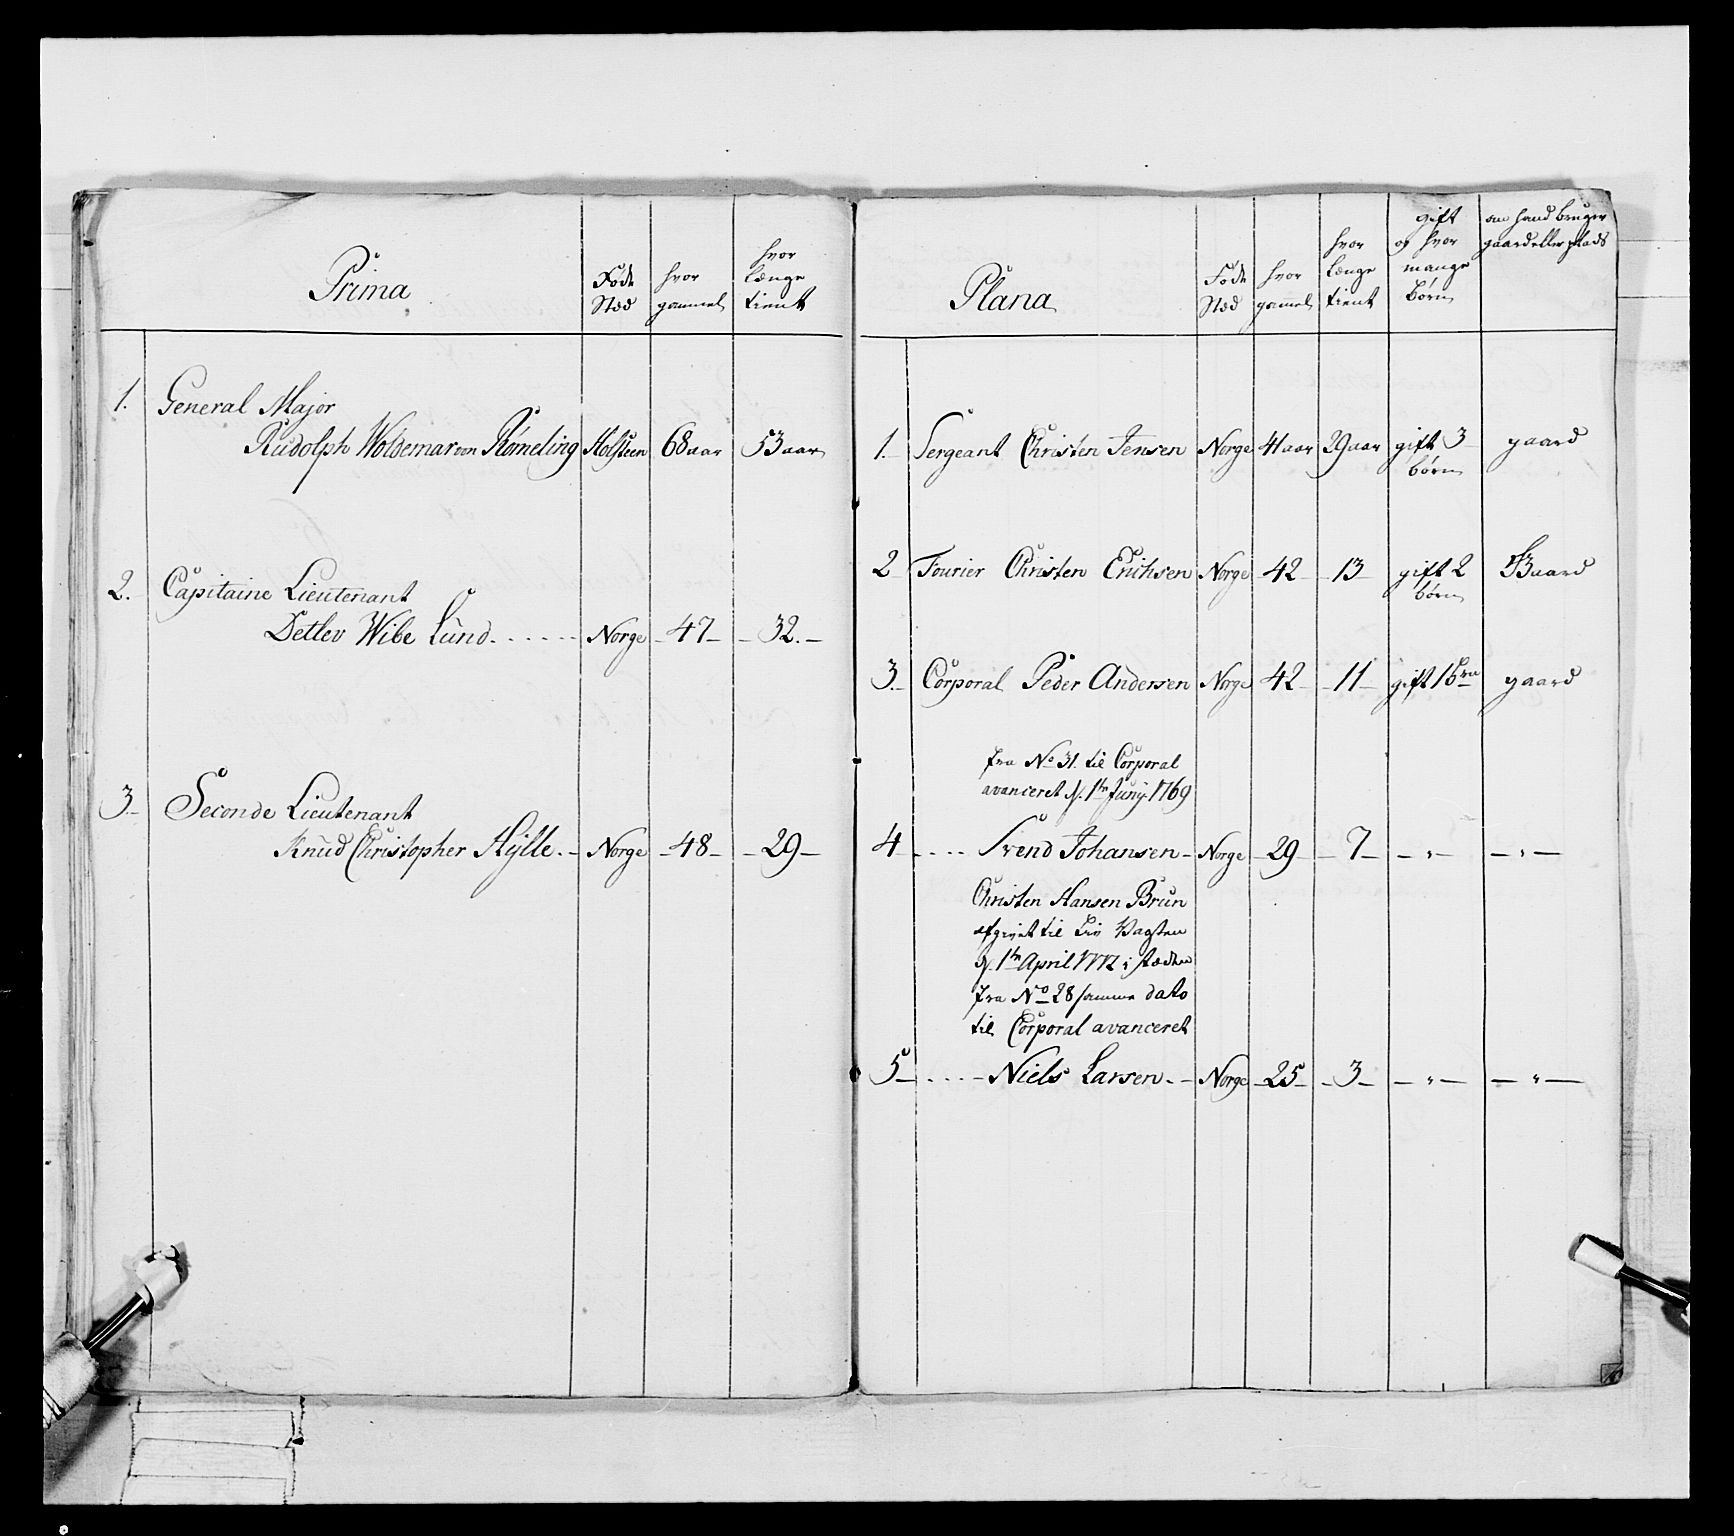 Prima
Føde Stæd
hvor gammel
hvor længe tient
1. General Major
Rudolph Woldemar von Rømeling Holsteen 68 aar 53 aar
2. Capitaine Lieutenant
Detlev Wibe Lund. - - - - - Norge - 47 - - 32. -
3. Seconde Lieutenant
Knud Christopher Hÿlle. - Norge - 48 - - 29 -
Plana
Føde Stæd
hvor gammel
hvor længe tient
gift og hvor mange børn
om hand bruger gaard eller plads
1. Sergeant Christen Jensen Norge 41 aar 29 aar gift 3 gaard
børn
2 Fourier Christen Erichsen Norge 42 - 13 - gift 2 Gaard
børn
3. Corporal Peder Andersen Norge 42 - 11 - gift 1 brn gaard
fra No 31. til Corporal
avanceret d. 1tn Junÿ 1769
4 - - - - Svend Johansen - Norge - 29 - 7 - - " - - " -
Christen Hansen Brun
afgivet til Liv Vagten
d. 1tn April 1772 i stæden
fra No 28 samme dato
til Corporal avanceret
5 - - - - - Niels Larsen. - Norge - 25 - - 3 - - " - - " -